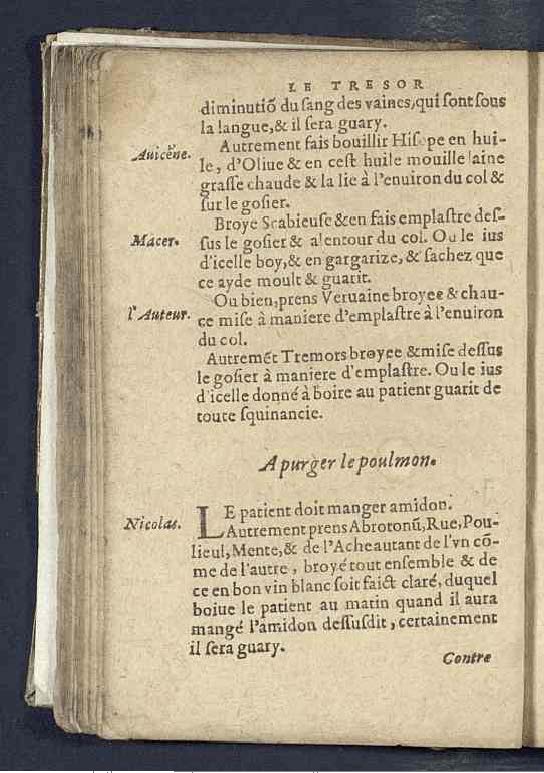 LE TRESOR
diminutiõ du ſang des vaines, qui ſont ſous
la langue, & il ſera guary.
Auicẽne.
Autrement fais bouillir Hiſope en hui-
le, d'Oliue & en ceſt huile mouille laine
graſſe chaude & la lie à l'enuiron du col &
ſur le goſier.
Macer.
Broye Scabieuſe & en fais emplaſtre deſ-
ſus le goſier & alentour du col. Ou le ius
d'icelle boy, & en gargarize, & ſachez que
ce ayde moult & guarit.
l'Auteur.
Ou bien, prens Veruaine broyee & chau-
ce miſe à maniere d'emplaſtre à l'enuiron
du col.
Autremẽt Tremors broyee & miſe deſſus
le goſier à maniere d'emplaſtre. Ou le ius
d'icelle donné à boire au patient guarit de
toute ſquinancie.
A purger le poulmon.
Nicolas.
LE patient doit manger amidon.
Autrement prens Abrotonũ, Rue, Pou-
lieul, Mente, & de l'Ache autant de l'vn cõ-
me de l'autre, broyé tout enſemble & de
ce en bon vin blanc ſoit faict claré, duquel
boiue le patient au matin quand il aura
mangé l'amidon deſſuſdit, certainement
il ſera guary.
Contre